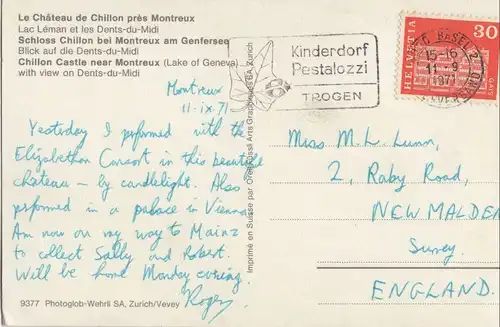 Le Château de Chillon près Montreux
Lac Léman et les Dents-du-Midi
Schloss Chillon bei Montreux am Genfersee
Blick auf die Dents-du-Midi
Chillon Castle near Montreux (Lake of Geneva)
with view on Dents-du-Midi
Montreux
11-ix.71
Yesterday I performed with the
Elizabethan Consort in this beautiful
château — by candlelight. Also
performed in a palace in Vienna
Am now on my way to Mainz
to collect Sally and Robert.
Will be home Monday evening.
Roger
9377 Photoglob-Wehrli SA, Zurich/Vevey
Imprimé en Suisse par Orell Füssli Arts Graphiques SA, Zurich
Kinderdorf
Pestalozzi
TROGEN
BASEL 2
15-16
HELVETIA
30
Miss M. L. Lunn,
2, Raby Road,
NEW MALDEN
Surrey.
ENGLAND.